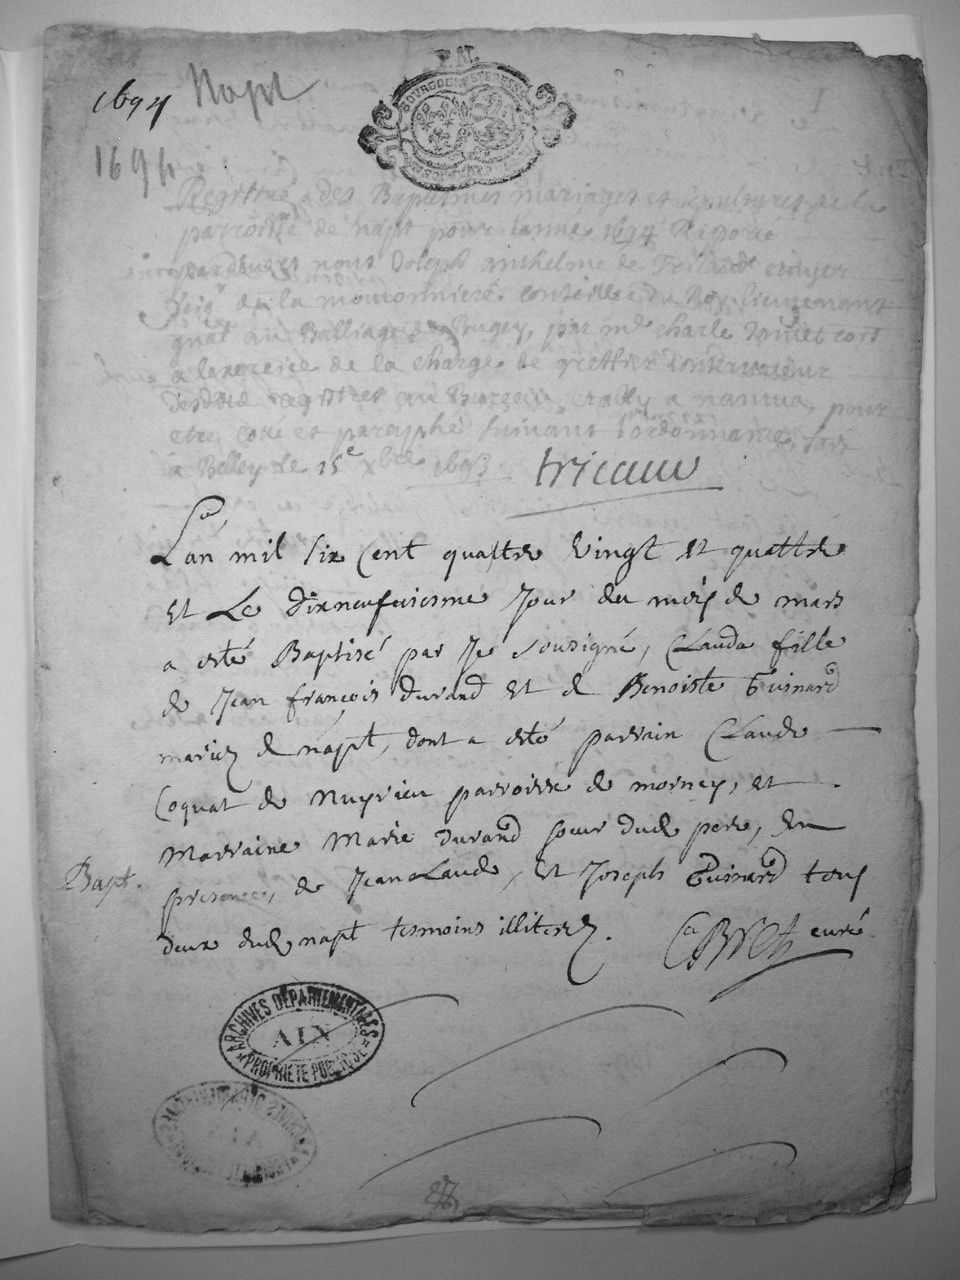 1694 Napt
BOURGOGNE ET BRESSE
1694
Registre des Baptesmes mariages et sepultures de la
parroisse de napt pour lannée 1694 Raporté
pardevant nous Joseph Anthelme de Tricaud escuyer
seigr de la moutonniere conseiller du Roy lieutenant
gnal au Balliage de Bugey, par me charle
a lexercice de la charge de greffier conservateur
desdits registres au Bureau estably a nantua pour
etre cotté et paraphé suivant lordonnance, fait
a Belley le 15e xbre 1693 tricaud
Lan mil six Cent quattre vingt et quattre
et Le dixneufviesme Jour du mois de mars
a esté Baptisé par Je sousigné, Clauda fille
de Jean françois durand et de Benoiste Guinard
mariez de napt, dont a esté parrain Claude
Coquat de Nuyrieu parroisse de mornay, et
Marraine Marie durand soeur dud pere, En
Bapt.
presence, de Jean Claude, et Joseph Guinard tous
deux dud napt tesmoins illiterez. Bret curé
ARCHIVES DÉPARTEMENTALES
AIN
PROPRIÉTÉ PUBLIQUE